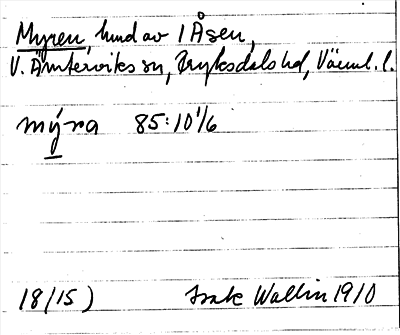 Myren, hmd av 1 Åsen,
V. Ämterviks sn, Fryksdals hd, Värml. l.
mýra 85:10 1/6
18/15) Isak Wallin 1910